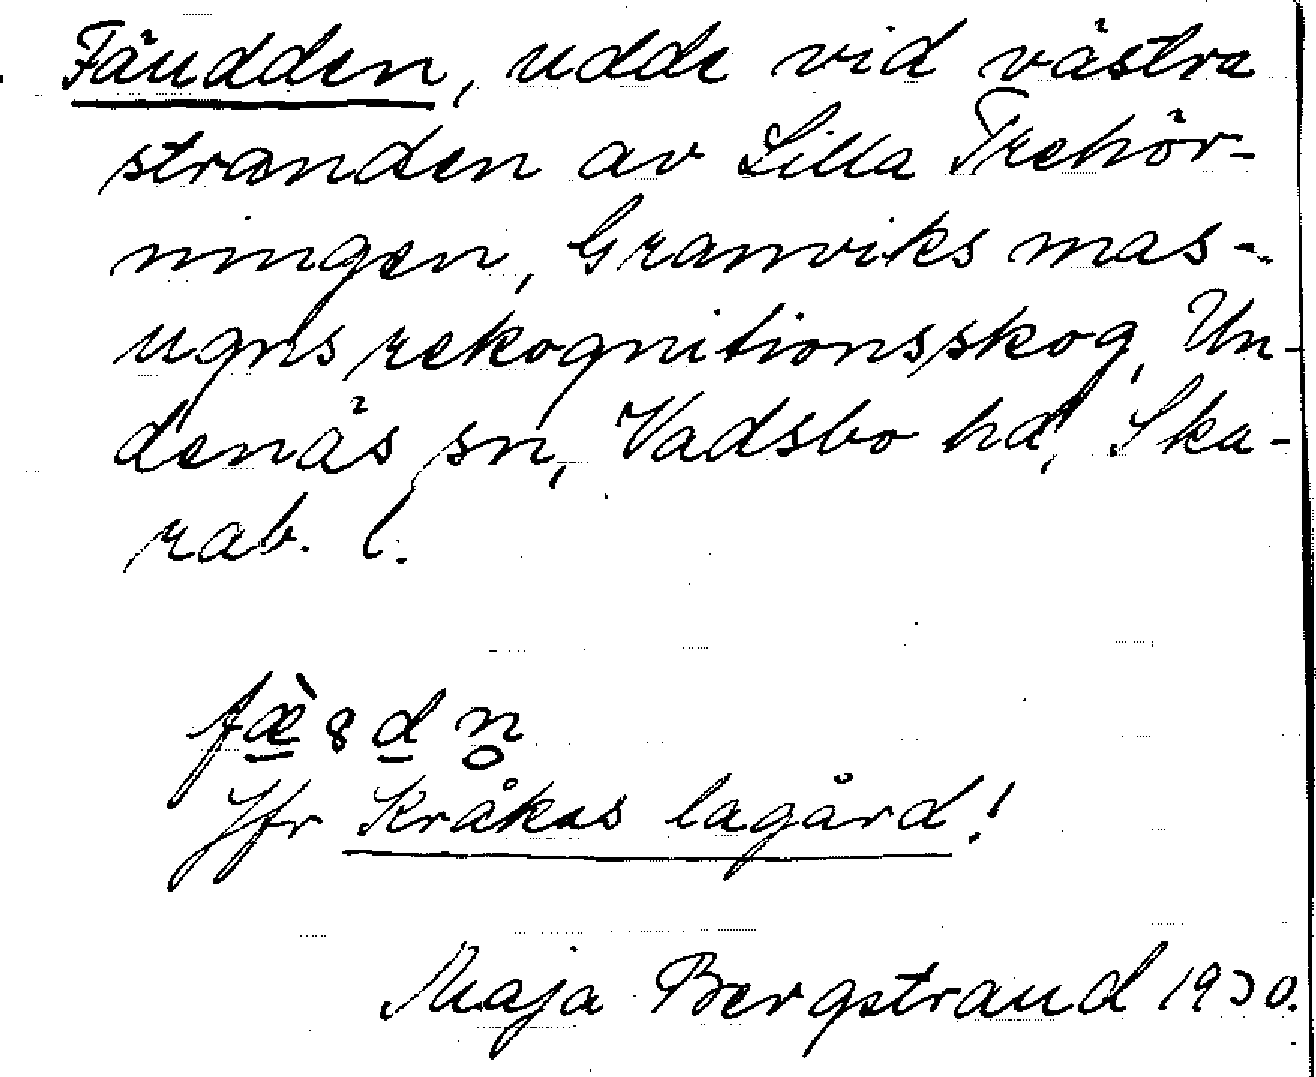 Fäudden, udde vid västra
stranden av Lilla Trehör-
ningen, Granviks mas-
ugns rekognitionsskog, Un-
denäs sn, Vadsbo hd, Ska-
rab. l.
fæ̀8dn̥
Jfr Kråkas lagård!
Maja Bergstrand 1930.